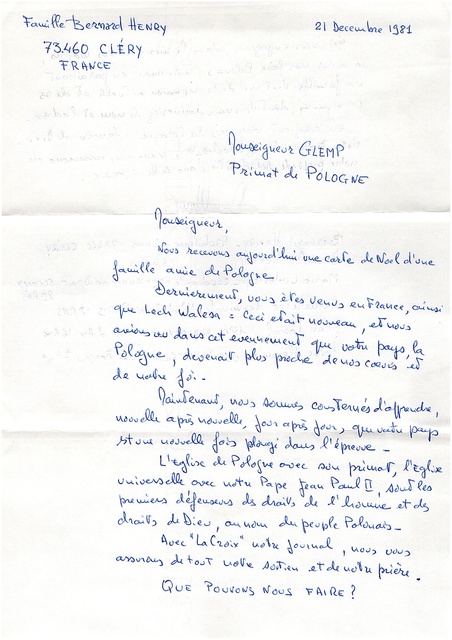 Famille Bernard HENRY
21 Decembre 1981
73.460 CLÉRY
FRANCE
Monseigneur GLEMP
Primat de POLOGNE
Monseigneur,
Nous recevons aujourd'hui une carte de Noel d'une
famille amie de Pologne
Dernierement, vous êtes venus en France, ainsi
que Lech Walesa : Ceci etait nouveau, et nous
avions vu dans cet evennement que votre pays, la
Pologne, devenait plus proche de nos coeurs et
de notre foi.
Maintenant, nous sommes consternés d'apprendre,
nouvelle après nouvelle, jour après jour, que votre pays
est une nouvelle fois plongé dans l'épreuve -
L'Eglise de Pologne avec son primat, l'Eglise
universelle avec notre Pape Jean Paul II, sont les
premiers défenseurs des droits de l'homme et des
droits de Dieu, au nom du peuple Polonais -
Avec "La Croix" notre journal, nous vous
assurons de tout notre soutien et de notre prière.
QUE POUVONS NOUS FAIRE ?